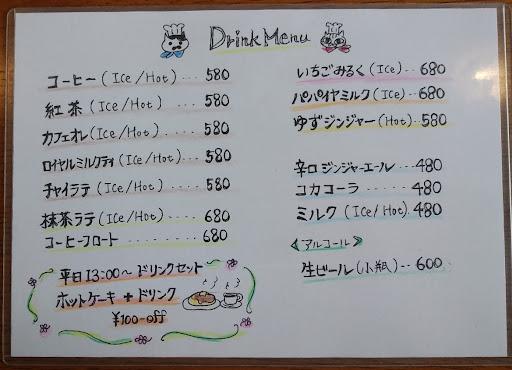 Drink Menu
コーヒー (Ice/Hot) ... 580
紅茶 (Ice/Hot) .... 580
カフェオレ (Ice/Hot) .... 580
ロイヤルミルクティ (Ice/Hot) ... 580
チャイラテ (Ice/Hot) .... 580
抹茶ラテ (Ice/Hot) ..... 680
コーヒーフロート ........ 680
平日 13:00〜 ドリンクセット
ホットケーキ + ドリンク
¥100-off
いちごみるく (Ice) ... 680
パパイヤミルク (Ice) ... 680
ゆずジンジャー (Hot) . 580
辛口 ジンジャーエール ... 480
コカコーラ ..... 480
ミルク (Ice/Hot). 480
アルコール
生ビール (小瓶) .. 600